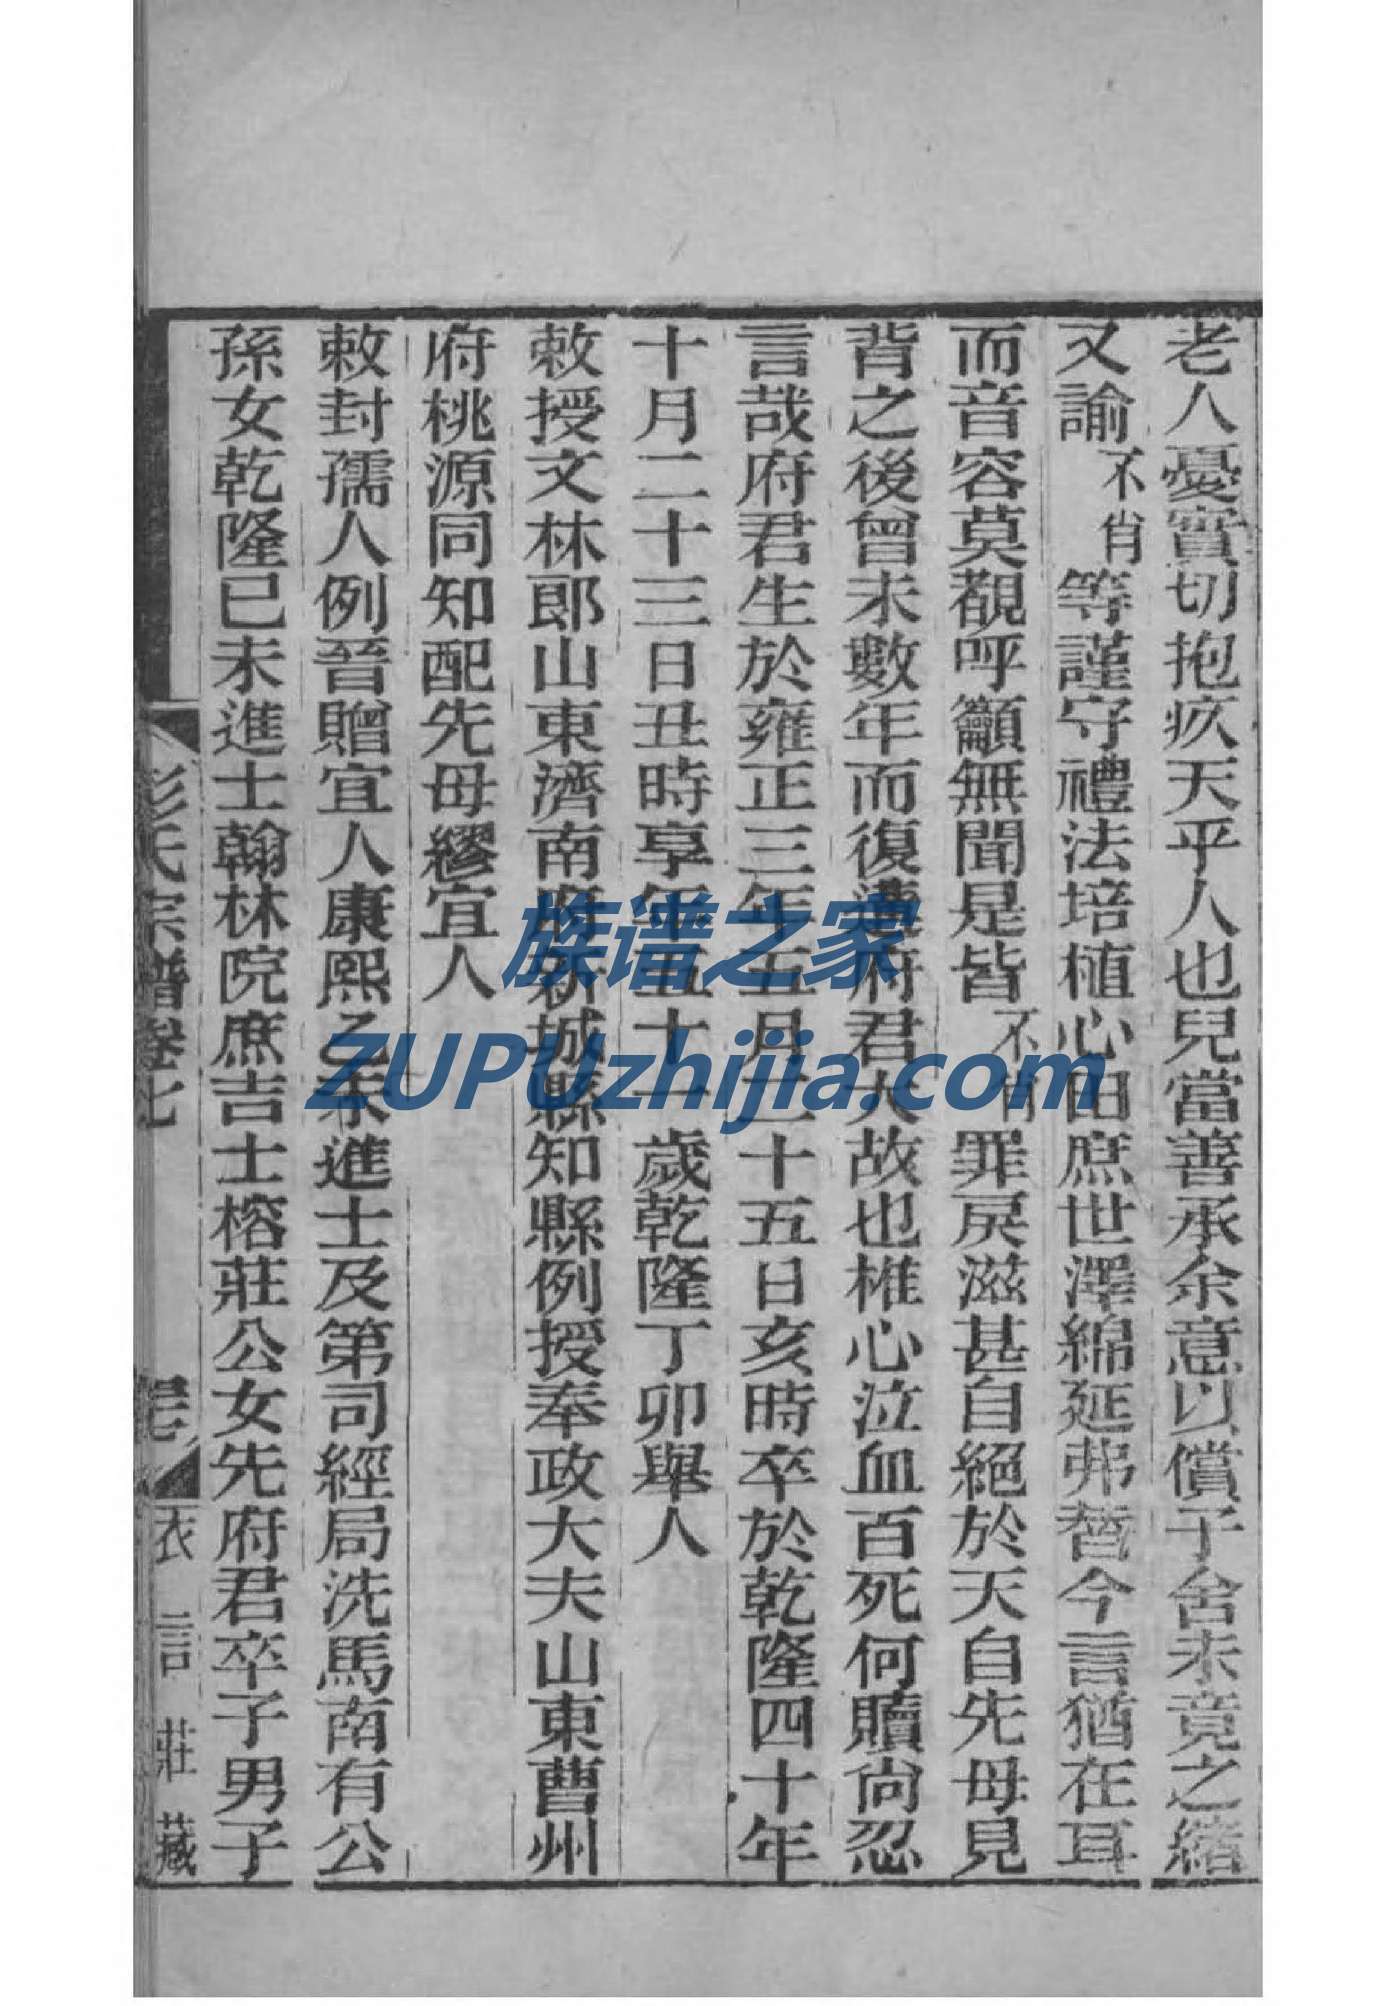 老人憂實切抱疚天乎人也兒當善承余意以償予舍未竟之緒
又諭不肖等謹守禮法培植心田庶世澤綿延弗替今言猶在耳
而音容莫覩呼籲無聞是皆不肖罪戾滋甚自絕於天自先母見
背之後曾未數年而復遭府君大故也椎心泣血百死何贖尙忍
言哉府君生於雍正三年五月二十五日亥時卒於乾隆四十年
十月二十三日丑時享年五十一歲乾隆丁卯舉人
敕授文林郎山東濟南府新城縣知縣例授奉政大夫山東曹州
府桃源同知配先母繆宜人
敕封孺人例晉贈宜人康熙乙未進士及第司經局洗馬南有公
孫女乾隆己未進士翰林院庶吉士榕莊公女先府君卒子男子
彭氏宗譜卷七
衣言莊藏
族谱之家
ZUPUzhijia.com